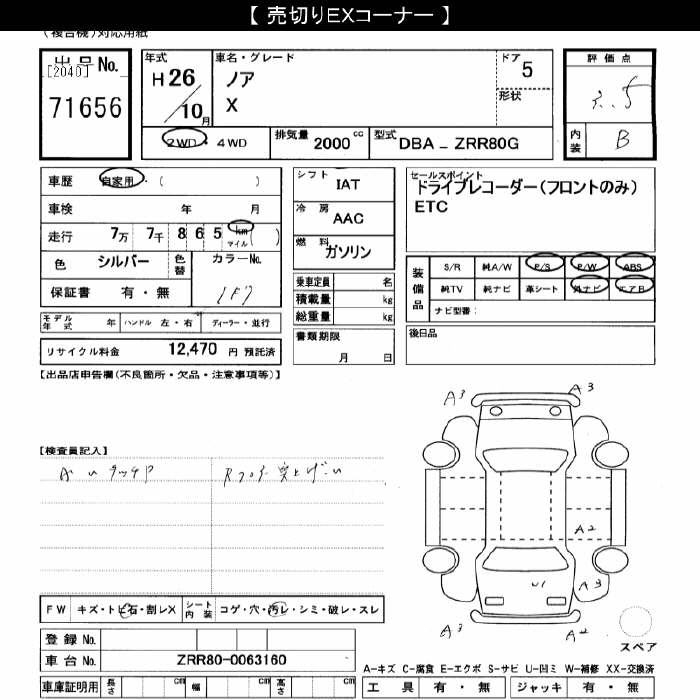 【 売切りEXコーナー 】
(複合機)対応用紙
出品No.
[2040]
71656
年式
H 26
10 月
車名・グレード
ノア
X
ドア
5
形状
2WD ・ 4WD
排気量 2000 cc
型式 DBA - ZRR80G
評価点
3.5
内装 B
車歴 自家用・( )
車検 年 月
走行 7万 7千 8 6 5 km マイル ( )
色 シルバー 色替 カラーNo.
1F7
保証書 有・無
モデル年式 年 ハンドル 左・右 ディーラー・並行
リサイクル料金 12,470 円 預託済
シフト IAT
冷房 AAC
燃料 ガソリン
乗車定員 名
積載量 kg
総重量 kg
書類期限
月 日
セールスポイント
ドライブレコーダー(フロントのみ)
ETC
装備品
S/R 純A/W P/S P/W ABS
純TV 純ナビ 革シート 外ナビ エアB
ナビ型番:
後日品
【出品店申告欄(不良箇所・欠品・注意事項等)】
【検査員記入】
A3
A3
A2
A3
U1
A3
A2
スペア
FW キズ・トビ石・割レX シート内装 コゲ・穴・汚レ・シミ・破レ・スレ
登録 No.
車台 No. ZRR80-0063160
車庫証明用 長さ cm 幅 cm 高さ cm
A-キズ C-腐食 E-エクボ S-サビ U-凹ミ W-補修 XX-交換済
工具 有・無 ジャッキ 有・無